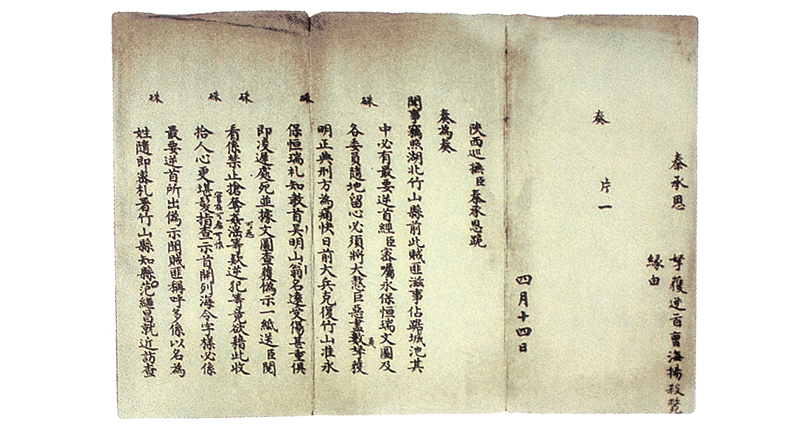 秦承恩
拏獲逆首曾海揚殺斃
緣由
奏
片一
四月十四日
陝西巡撫臣秦承恩跪
奏為奏
聞事竊照湖北竹山縣前此賊匪滋事佔踞城池其
硃
中必有最要逆首經臣密囑永保恒瑞文圖及
各委員隨地留心必須將大憝巨惡盡數拏獲
明正典刑方為痛快日前大兵克復竹山准永
硃
保恒瑞札知教首吳明山翁名遠受傷甚重俱
即凌遲處死並據文圖查獲偽示一紙送臣閱
可惡
硃
看係禁止搶奪姦淫等款逆犯等竟欲藉此收
硃
拾人心更堪髮指查示首開列海令字樣必係
最要逆首所出偽示聞賊匪稱呼多係以名為
硃
姓隨即密札署竹山縣知縣范繼昌就近訪查